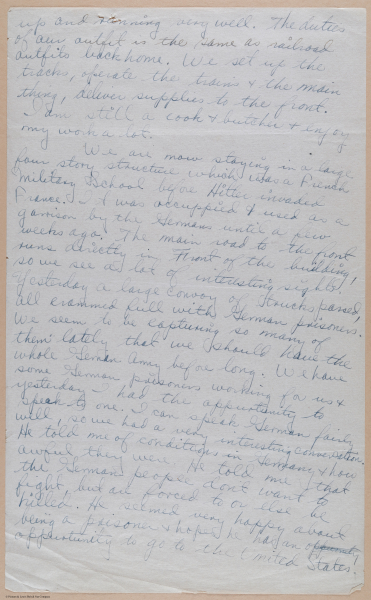 up and running very well. The duties
of our outfit is the same as railroad
outfits back home. We set up the
tracks, operate the trains & the main
thing, deliver supplies to the front.
I am still a cook & butcher & enjoy
my work a lot.
We are now staying in a large
four story structure which was a French
Military School before Hitler invaded
France. It was occuppied & used as a
garrison by the Germans until a few
weeks ago. The main road to the front
runs directly in front of the building,
so we see a lot of interesting sights.
Yesterday a large convoy of trucks passed,
all crammed full with German prisoners.
We seem to be capturing so many of
them lately that we should have the
whole German Army before long. We have
some German prisoners working for us &
yesterday I had the oppurtunity to
speak to one. I can speak German fairly
well, so we had a very intresting conversation.
He told me of conditions in Germany & how
awful they were. He told me that
the German people don't want to
fight, but are forced to or else be
killed. He seemed very happy about
being a prisoner & hopes he has an
oppurtunity to go to the United States.